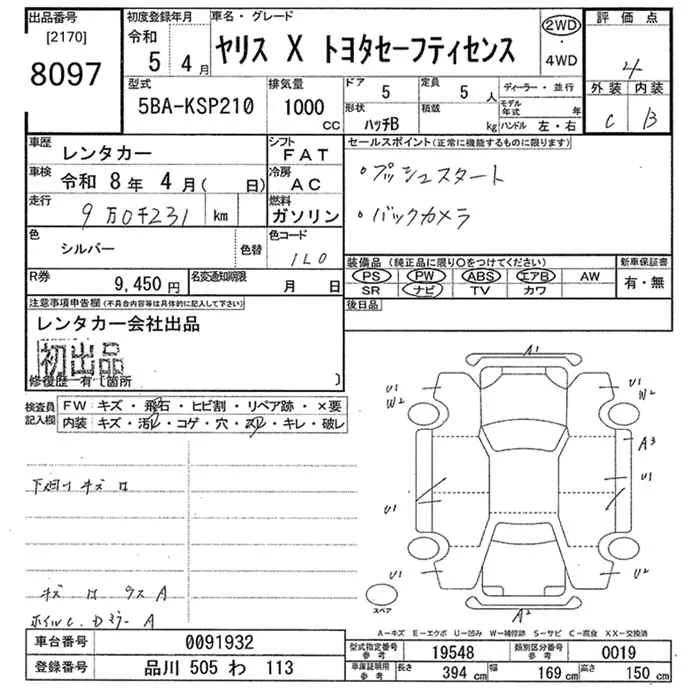 出品番号 初度登録年月 車名・グレード 評価点
[2170] 令和
8097 5 4月 ヤリス X トヨタセーフティセンス 2WD・4WD 4
型式 排気量 ドア 5 定員 5人 ディーラー・並行 外装 内装
5BA-KSP210 1000cc 形状 ハッチB 積載 kg モデル年式 年 C B
ハンドル 左・右
車歴 レンタカー シフト FAT セールスポイント(正常に機能するものに限ります)
車検 令和 8年 4月( 日) 冷房 AC ・プッシュスタート
走行 9万0千231 km 燃料 ガソリン ・バックカメラ
色 シルバー 色替 色コード 1L0
装備品(純正品に限り○をつけてください) 新車保証書
R券 9,450円 名変通知期限 月 日 PS PW ABS エアB AW 有・無
SR ナビ TV カワ
注意事項申告欄(不具合内容等は具体的に記入して下さい) 後日品
レンタカー会社出品
初出品
修復歴-有〔箇所 〕
検査員記入欄 FW キズ・飛石・ヒビ割・リペア跡・×要
内装 キズ・汚・コゲ・穴・スレ・キレ・破レ
A1
U1 U1
W2 W2
A3
下廻り キズ U1
U1
U1 U2
キズ ウス A
ホイルC. Dミラー A スペア A2
A-キズ E-エクボ U-凹み W-補修跡 S-サビ C-腐食 XX-交換済
車台番号 0091932 型式指定番号 参考 19548 類別区分番号 参考 0019
登録番号 品川 505 わ 113 車庫証明用 参考 長さ 394 cm 幅 169 cm 高さ 150 cm